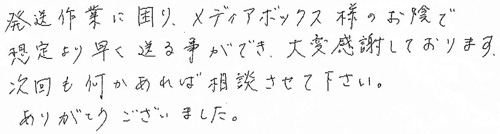 発送作業に困り、メディアボックス様のお陰で
想定より早く送る事ができ、大変感謝しております。
次回も何かあれば相談させて下さい。
ありがとうございました。